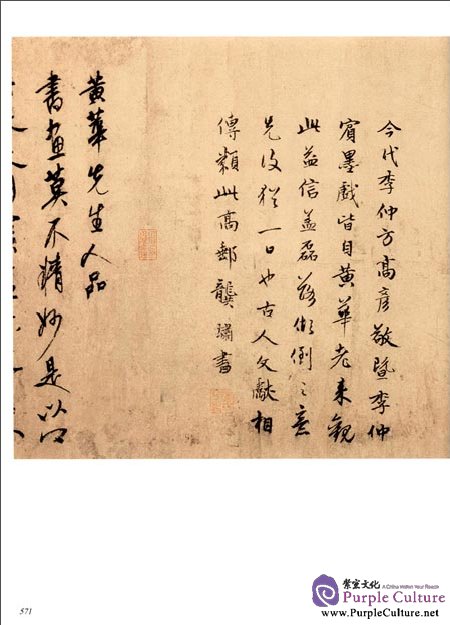 今代李仲方高彦敬暨李仲
賓墨戲皆自黄華老来觀
此益信蓋磊落倒之意
先後猶一日也古人文獻相
傳類此高郵龔璛書
黄華先生人品
書畫莫不精妙是以
紫室文化 A China Within Your Reach
Purple Culture
www.PurpleCulture.net
571